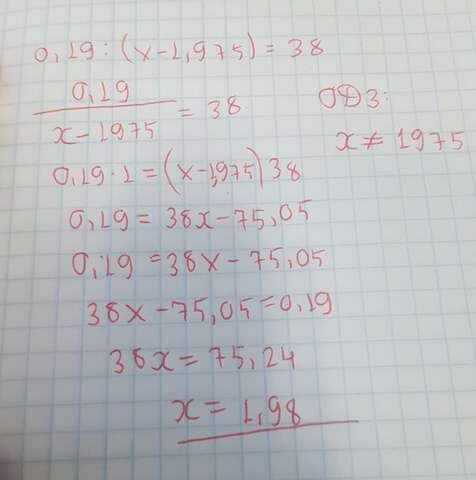 0,19 : (x-1,975) = 38
0,19
x-1975
= 38
ОДЗ:
x ≠ 1975
0,19·1 = (x-1,975)38
0,19 = 38x-75,05
0,19 = 38x - 75,05
38x - 75,05 = 0,19
38x = 75,24
x = 1,98